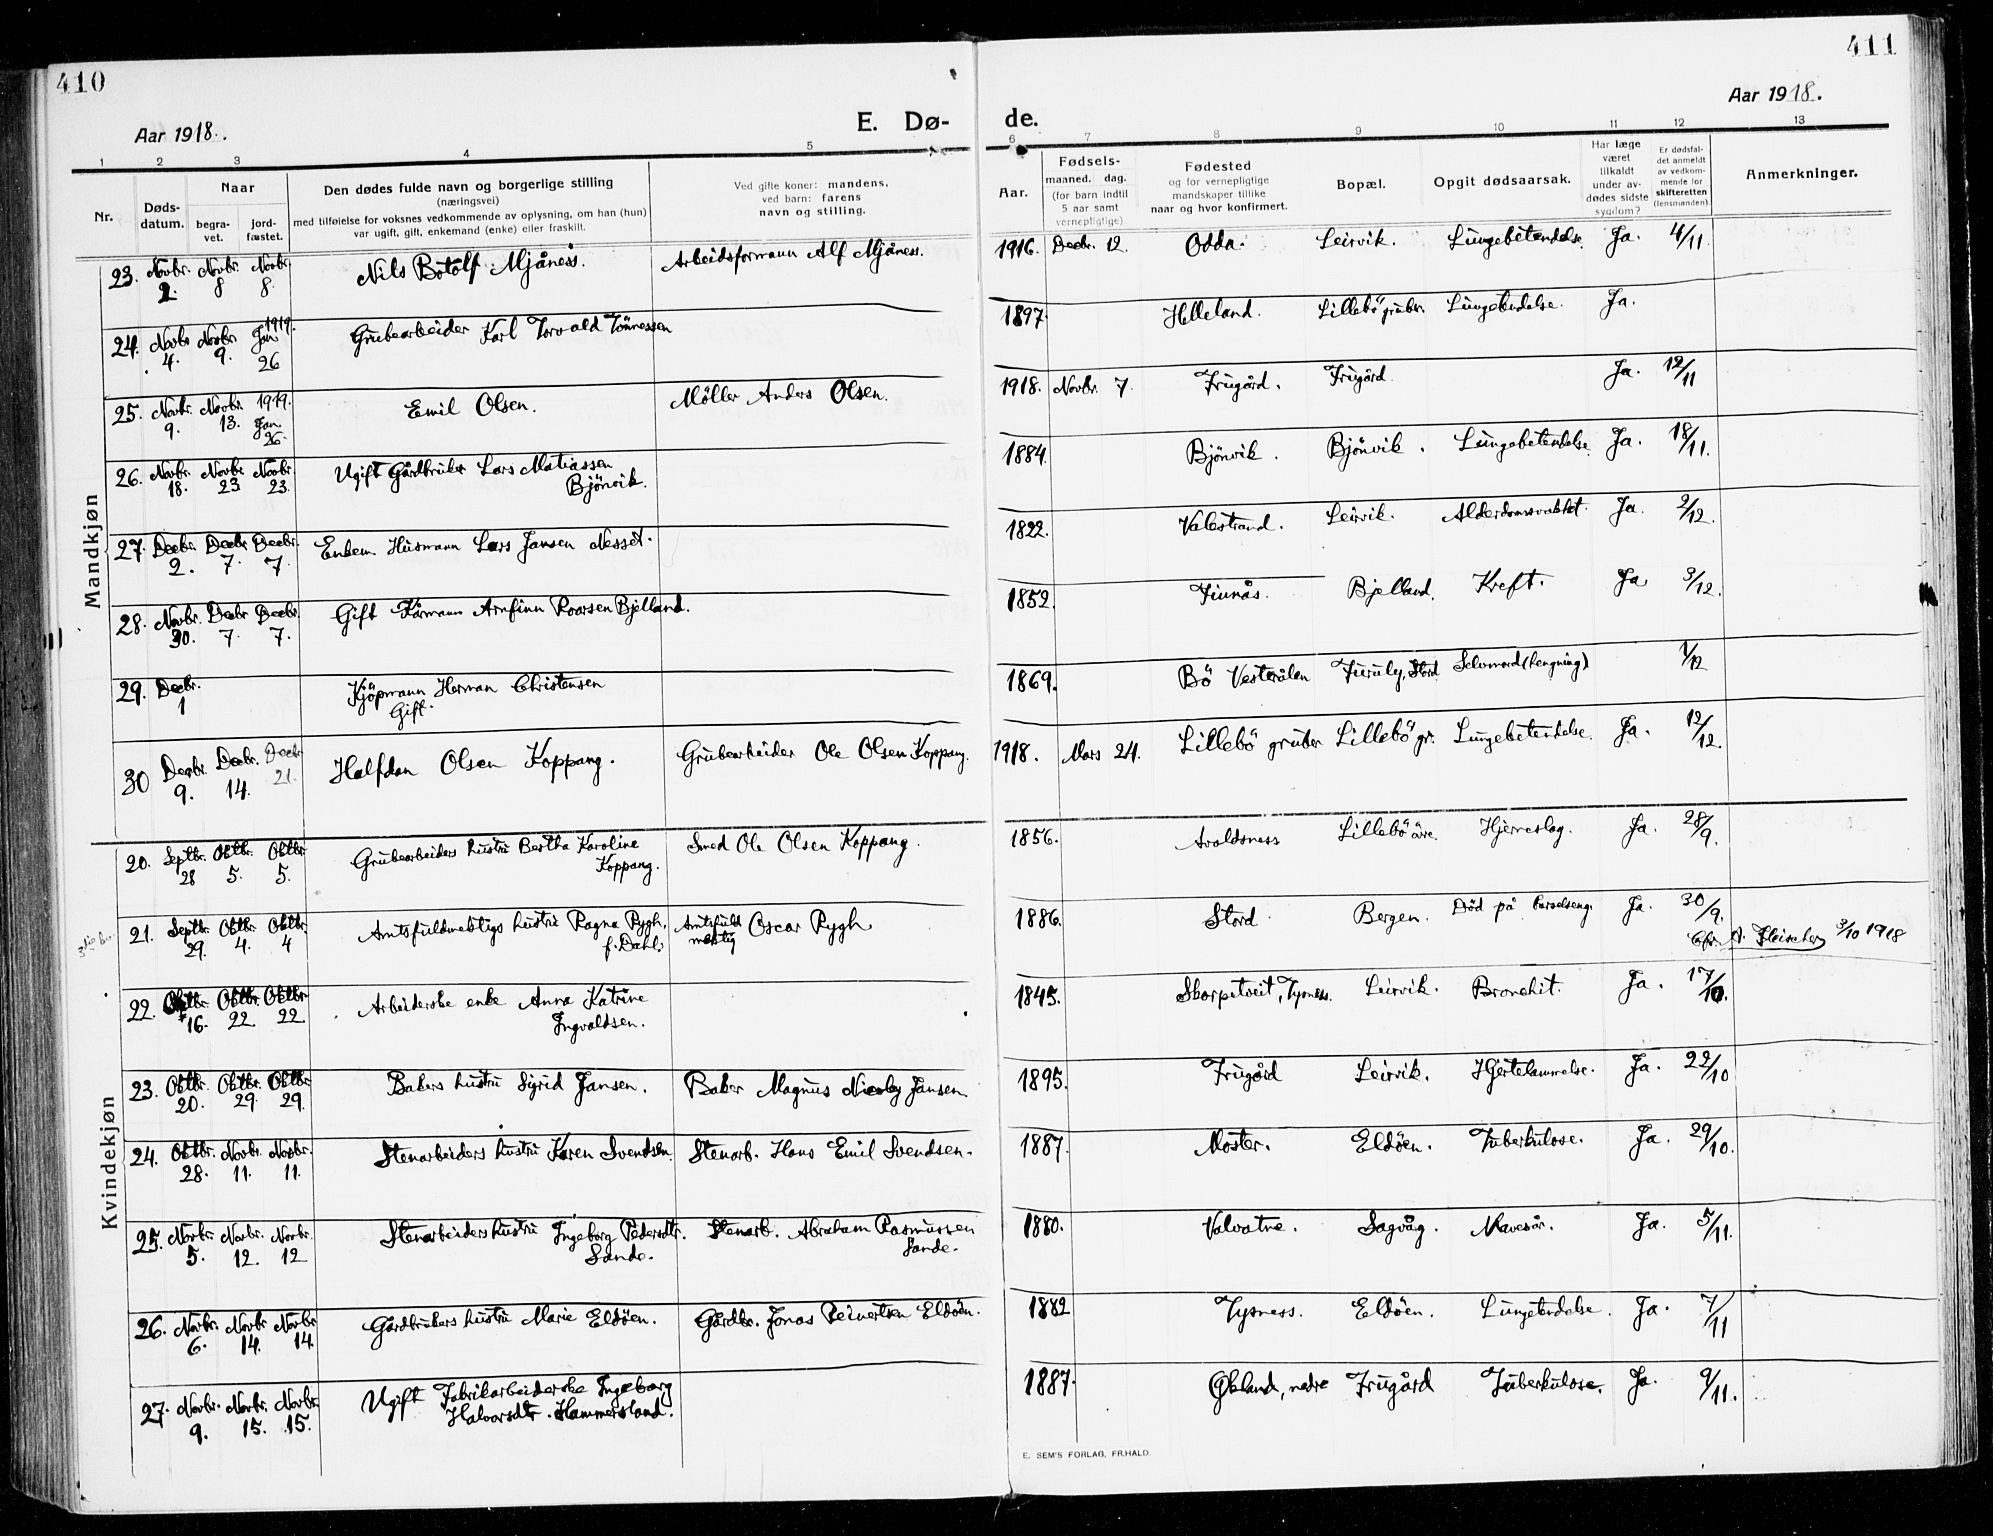 410
411
Aar 1918.
E. Dø-
de.
Aar 1918.
1 2 3 4 5 6 7 8 9 10 11 12 13
Nr.
Døds-
datum.
Naar
begra-
vet.
jord-
fæstet.
Den dødes fulde navn og borgerlige stilling
(næringsvei)
med tilføielse for voksnes vedkommende av oplysning, om han (hun)
var ugift, gift, enkemand (enke) eller fraskilt.
Ved gifte koner: mandens,
ved barn: farens
navn og stilling.
Aar.
Fødsels-
maaned. dag.
(for barn indtil
5 aar samt
vernepligtige)
Fødested
og for vernepligtige
mandskaper tillike
naar og hvor konfirmert.
Bopæl.
Opgit dødsaarsak.
Har læge
været
tilkaldt
under av-
dødes sidste
sygdom?
Er dødsfal-
det anmeldt
av vedkom-
mende for
skifteretten
(lensmanden).
Anmerkninger.
Mandkjøn
23. Novbr. 2. Novbr. 8 Novbr. 8. Nils Botolf Mjånes. Arbeidsformann Alf Mjåness. 1916. Decbr. 12. Odda. Leirvik. Lungebetendelse. Ja. 4/11.
24. Novbr. 4. Novbr. 9. 1919. Jan 26 Grubearbeider Karl Torvald Tönnessen 1897. Helleland. Lillebö gruber. Lungebetendelse. Ja.
25. Novbr. 9. Novbr. 13. 1919. Jan. 26. Emil Olsen. Møller Anders Olsen. 1918. Novbr. 7. Frugård. Frugård. Ja. 12/11
26. Novbr. 18. Novbr. 23. Novbr. 23. Ugift Gårdbruker Lars Matiassen
Bjönvik. 1884. Bjönvik. Bjönvik. Lungebetendelse. Ja. 18/11.
27. Decbr. 2. Decbr. 7. Decbr. 7. Enkem. Husmann Lars Jansen Nesset. 1822. Valestrand. Leirvik. Alderdomssvakhet. Ja. 2/12.
28. Novbr. 30. Decbr. 7. Decbr. 7. Gift Kårmann Arnfinn Roarsen Bjelland. 1852. Finnås. Bjelland. Kreft. Ja 3/12.
29. Decbr. 1 Kjöpmann Herman Christensen
Gift. 1869. Bö Vesterålen Furuly, Stord. Selvmord (hengning) 1/12
30 Decbr. 9. Decbr. 14. Decbr. 21. Halfdan Olsen Koppang. Grubearbeider Ole Olsen Koppang. 1918. Mars 24. Lillebö gruber Lillebö gr. Lungebetendelse. Ja. 12/12.
Kvindekjøn
20. Septbr. 28 Oktbr. 5. Oktbr. 5. Grubearbeiders hustru Bertha Karoline
Koppang. Smed Ole Olsen Koppang. 1856. Avaldsness Lillebö Hjerneslag. Ja. 28/9.
21. Septbr. 29. Oktbr. 4. Oktbr. 4 Amtsfuldmektigs hustru Ragna Rygh,
f. Dahl. Amtsfuldmektig Oscar Rygh 1886. Stord. Bergen. Död på barselseng. Ja. 30/9.
Cfr. A. Fleischer 3/10 1918
22. Oktbr. 16. Oktbr. 22 Oktbr. 22 Arbeiderske enke Anna Katrine
Ingvaldsen. 1845. Skorpetveit, Tysness. Leirvik. Bronchit. Ja. 17/10.
23. Oktbr. 20. Oktbr. 29. Oktbr. 29. Bakers hustru Sigrid Jansen. Baker Magnus Nicolay Jansen 1895. Frugård Leirvik. Hjertelammelse. Ja. 22/10
24. Oktbr. 28. Novbr. 11. Novbr. 11. Stenarbeiders hustru Karen Svendsen. Stenarb. Hans Emil Svendsen. 1887. Moster. Eldöen. Tuberkulose. Ja. 29/10.
25. Novbr. 5. Novbr. 12. Novbr. 12 Stenarbeiders hustru Ingeborg Pedersdtr.
Sande. Stenarb. Abraham Rasmussen
Sande. 1880. Valvatne. Sagvåg. Mavesår. Ja. 5/11.
26. Novbr. 6. Novbr. 14. Novbr. 14. Gårdbrukers hustru Marie Eldöen. Gårdbr. Jonas Reinertsen Eldöen. 1882 Tysness. Eldöen. Lungebetendelse. Ja. 7/11
27. Novbr. 9. Novbr. 15. Novbr. 15. Ugift Fabrikarbeiderske Ingeborg
Halvorsdtr. Hammersland. 1887. Økland, nedre Frugård Tuberkulose. Ja. 9/11.
E. SEM'S FORLAG, FR.HALD.